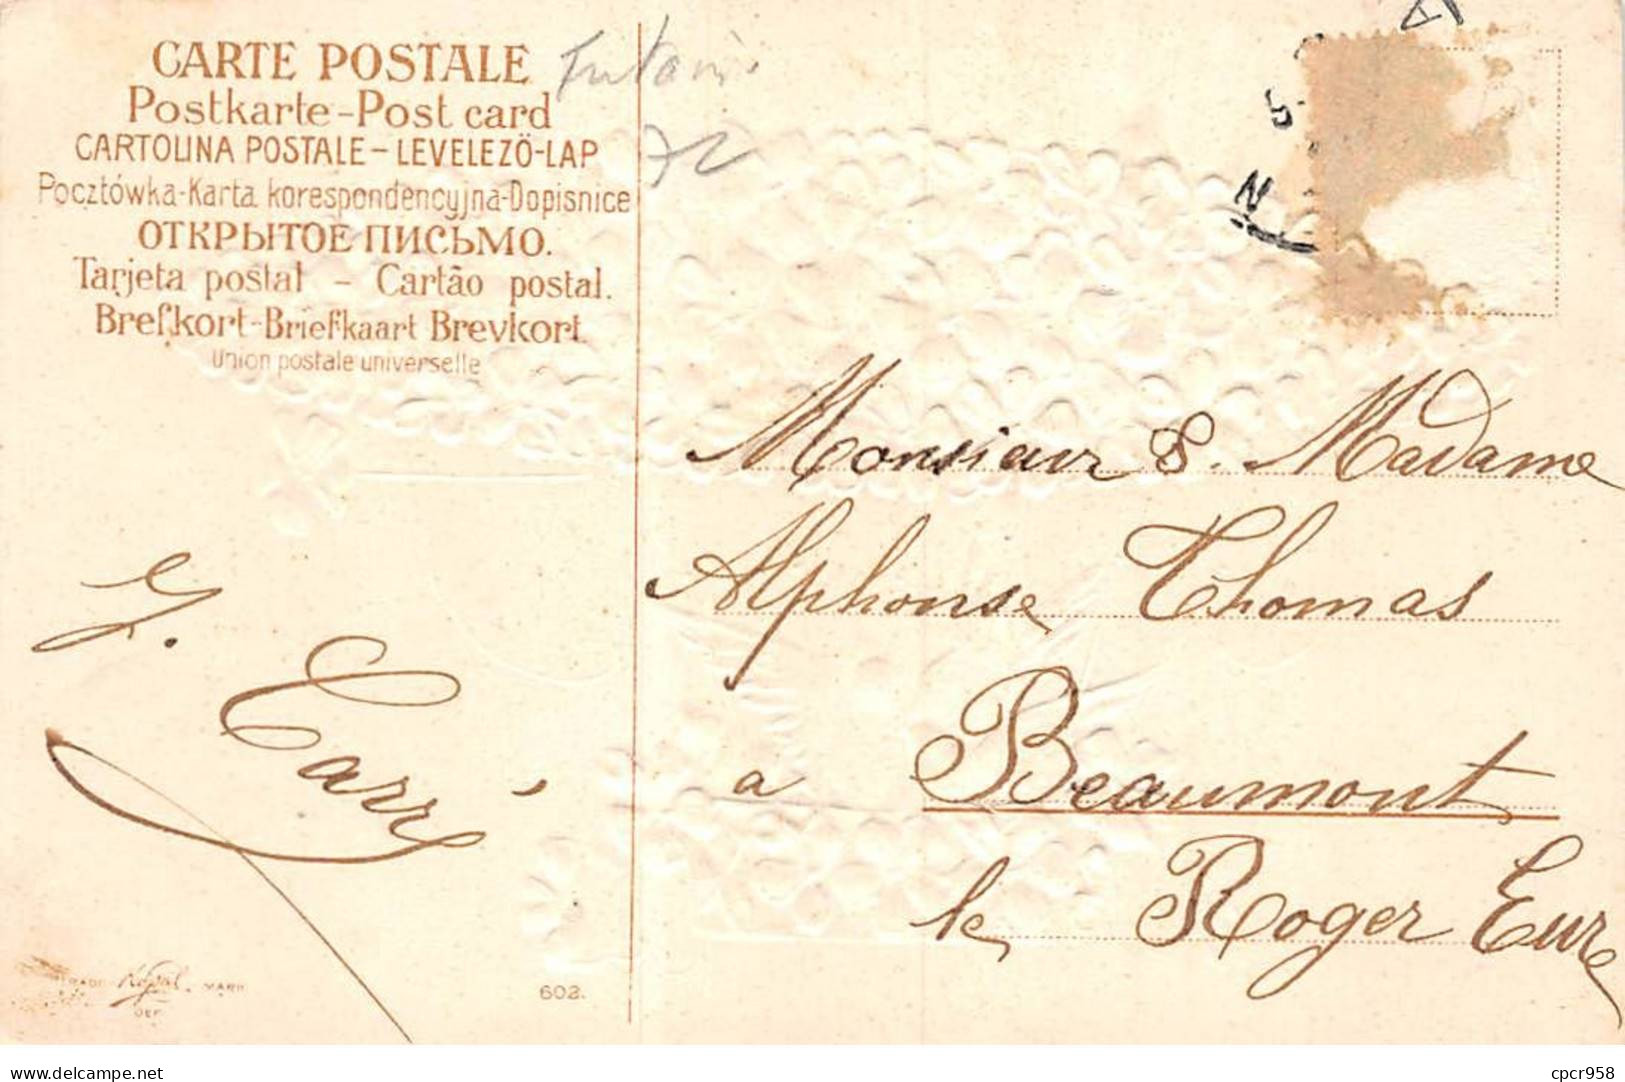 CARTE POSTALE
Postkarte-Post card
CARTOLINA POSTALE-LEVELEZÖ-LAP
Pocztówka-Karta korespondencyjna-Dopisnice
ОТКРЫТОЕ ПИСЬМО.
Tarjeta postal - Cartão postal.
Brefkort-Briefkaart Brevkort.
Union postale universelle
72
Monsieur & Madame
Alphonse Thomas
a Beaumont
le Roger Eure
Carré
602.
delcampe.net
cpcr958